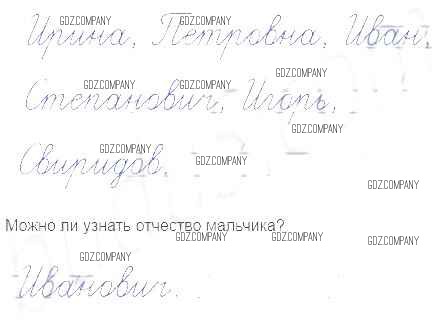 Ирина, Петровна, Иван,
Степанович, Игорь,
Свиридов.
Можно ли узнать отчество мальчика?
Иванович.
GDZ.COMPANY
GDZ.COMPANY
GDZ.COMPANY
GDZ.COMPANY
GDZ.COMPANY
GDZ.COMPANY
GDZ.COMPANY
GDZ.COMPANY
GDZ.COMPANY
GDZ.COMPANY
GDZ.COMPANY
GDZ.COMPANY
GDZ.COMPANY